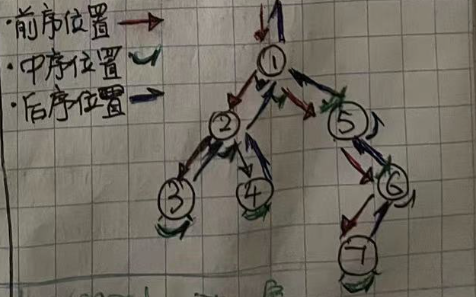 ·前序位置
·中序位置
·后序位置
1
2
5
3
4
6
7